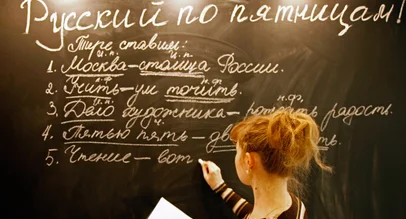 Русский по пятницам!
Тире ставим:
и.п. и.п.
1. Москва – столица России.
н.ф. н.ф.
2. Учить – ум точить.
и.п. н.ф.
3. Дело художника – рождать радость.
4. Пятью пять – 
5. Чтение – вот